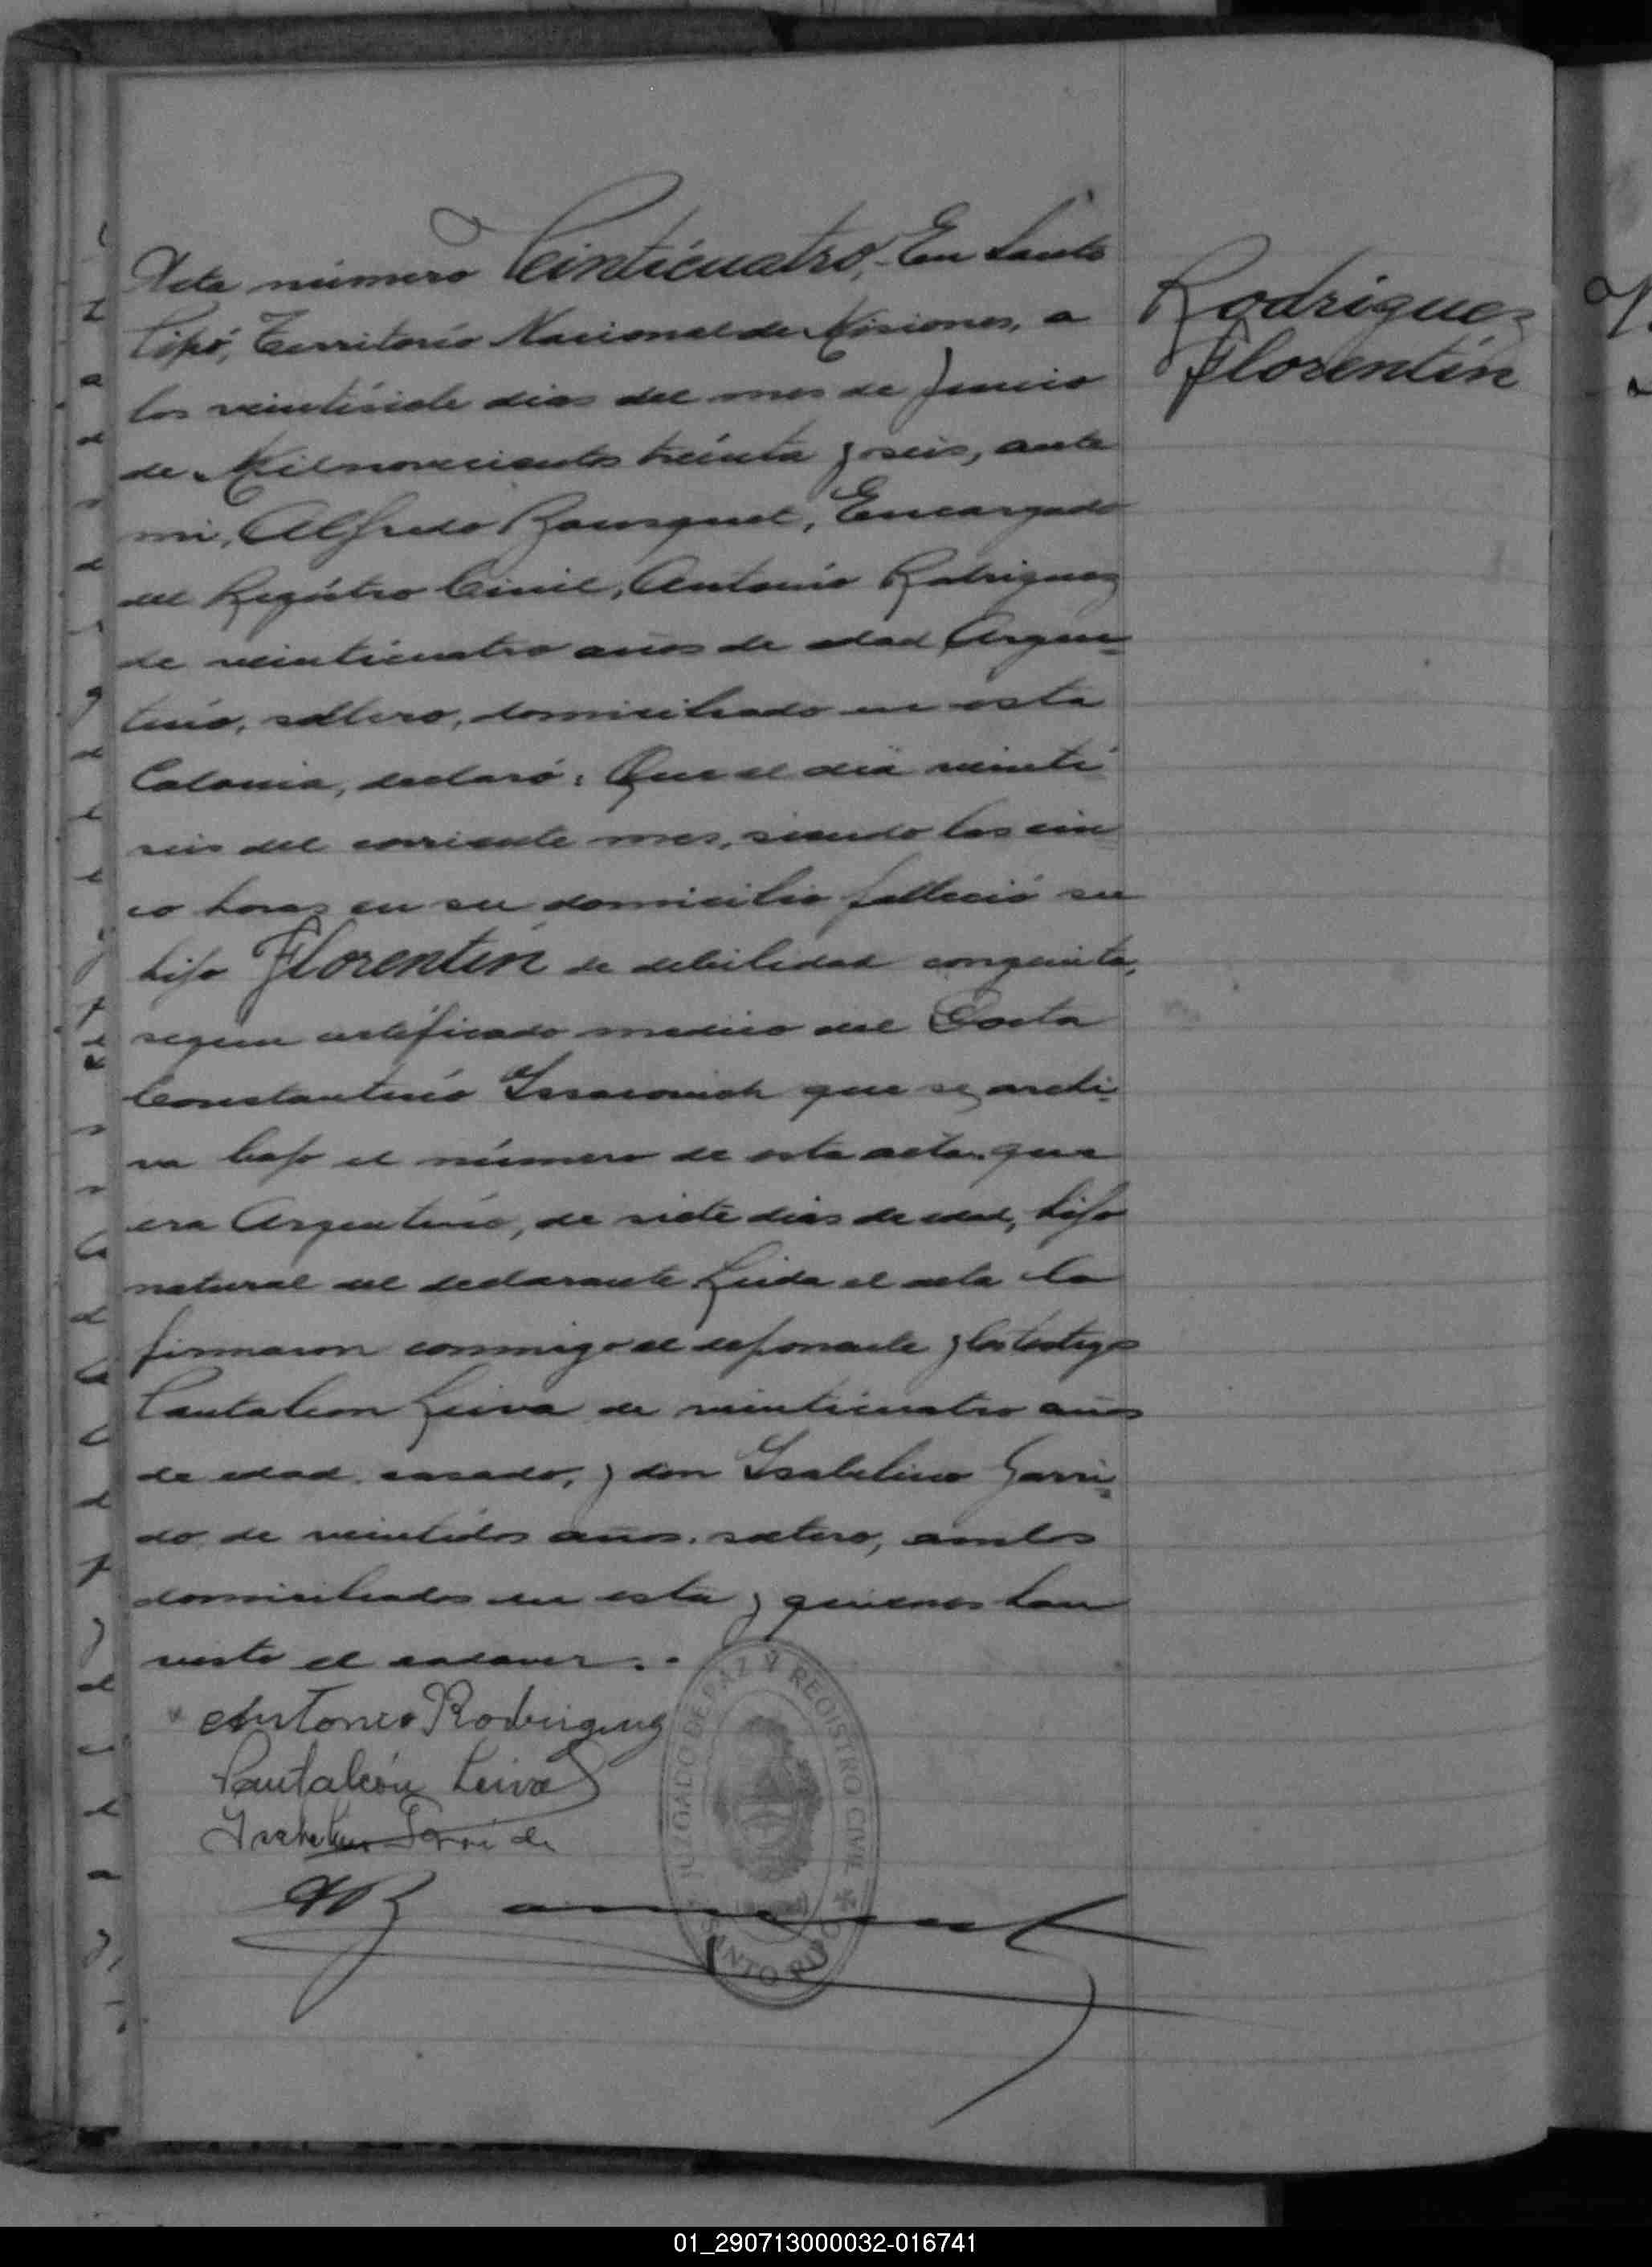 Acta número Veinticuatro, En Santo
Pipó, Territorio Nacional de Misiones, a
los veintisiete dias del mes de Junio
de Milnovecientos treinta y seis, ante
mi, Alfredo Bousquet, Encargado
del Registro Civil, Antonio Rodriguez
de veinticuatro años de edad Argen-
tino, soltero, domiciliado en esta
Colonia, declaró: Que el dia veinti
seis del corriente mes, siendo las cin
co horas en su domicilio falleció su
hijo Florentin de debilidad congenita,
segun certificado medico del
Constantino que se archi-
va bajo el número de esta acta. que
era Argentino, de siete dias de edad, hijo
natural del declarante Leida el acta la
firmaron conmigo el deponente y los testigos
Pantaleon Leiva de veinticuatro años
de edad, casado, y don Isabelino Garri-
do de veintidos años, soltero, ambos
domiciliados en esta y quienes han
visto el cadaver..
Antonio Rodriguez
Pantaleón Leiva
Isabelino Garrido
Rodriguez
Florentin
JUZGADO DE PAZ Y REGISTRO CIVIL
SANTO PIPO
01_290713000032-016741